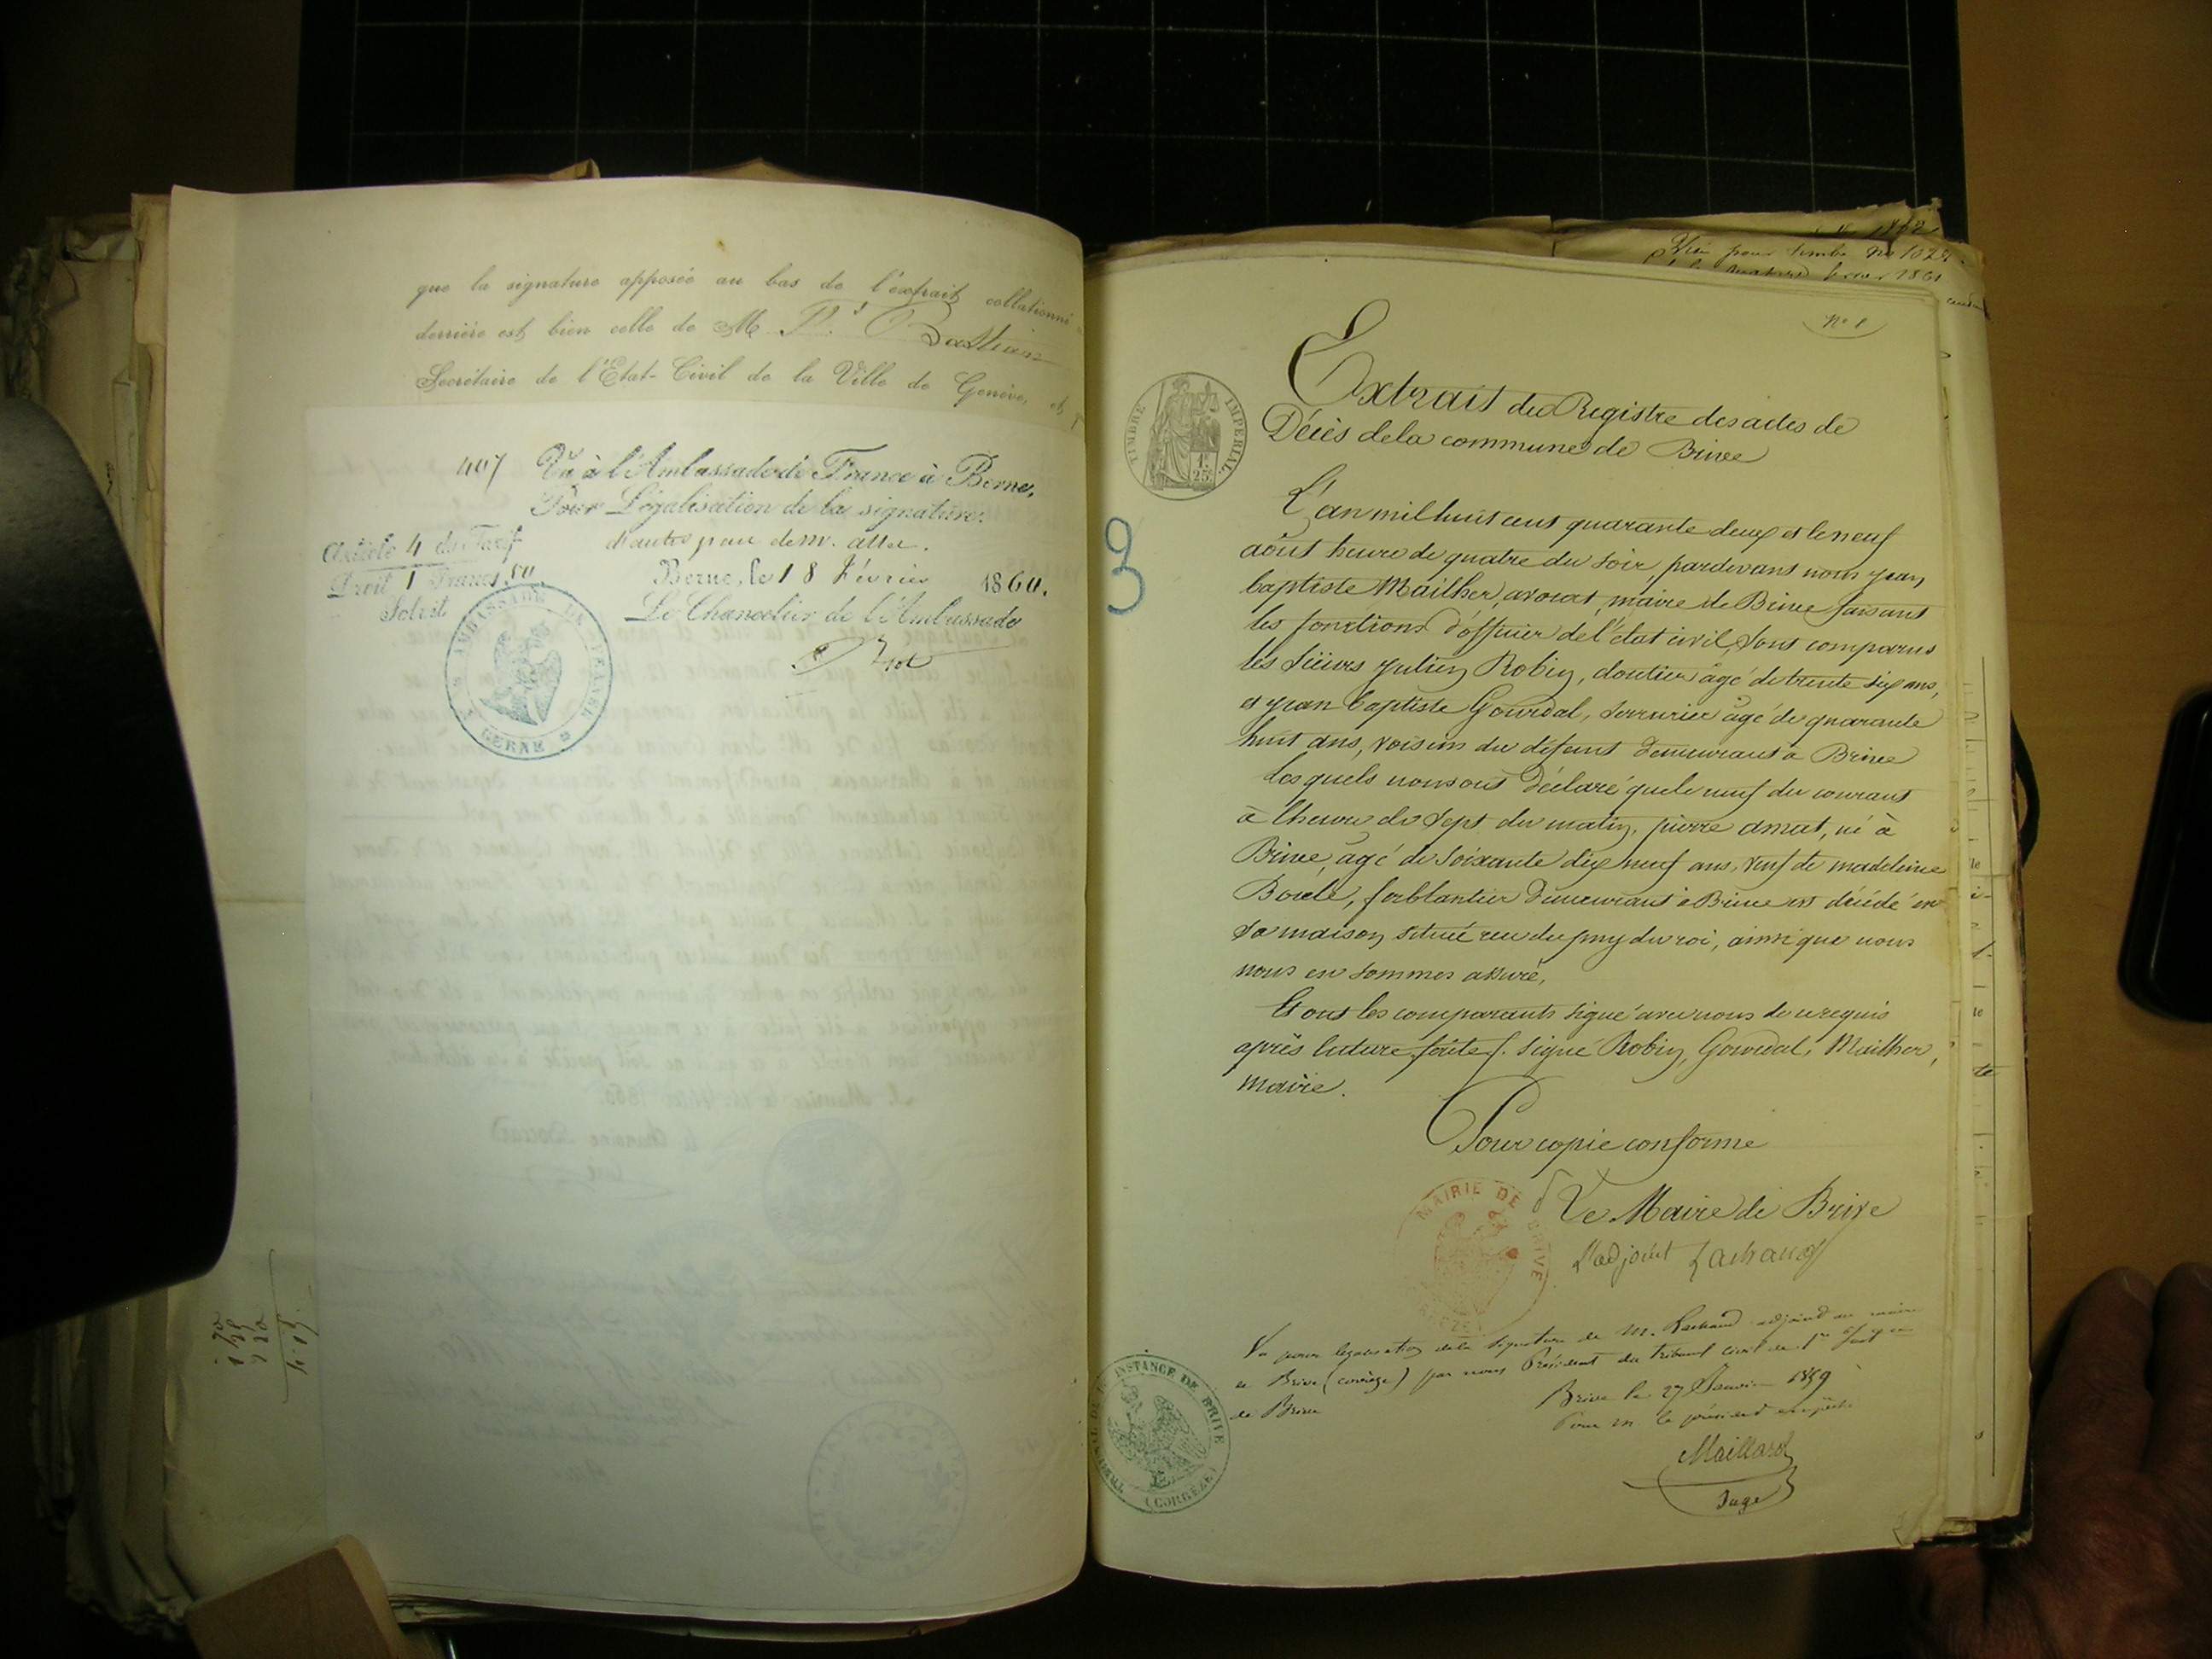 que la signature apposée au bas de l'extrait collationné
derrière est bien celle de M
Secrétaire de l'Etat-Civil de la Ville de Genève, et
Vu à l'Ambassade de France à Berne,
Pour Légalisation de la signature
d'autre part de M.
Article 4 du Tarif
Droit 1 Francs, 50.
Berne, le 18 Février 1860.
Le Chancelier de l'Ambassade
AMBASSADE DE FRANCE
BERNE
1862
Visé pour timbre
1861
No 1
TIMBRE IMPERIAL
1 F. 25 C.
3
Extrait du Registre des actes de
Décès de la commune de Brive
L'an mil huit cent quarante deux et le neuf
août heure de quatre du soir, pardevant nous jean
baptiste Mailher, avocat, maire de Brive faisant
les fonctions d'officier de l'état civil, sont comparus
les sieurs julien Robin, cloutier âgé de trente six ans,
et jean baptiste Gourdal, serrurier âgé de quarante
huit ans, voisins du défunt demeurant à Brive
Les quels nous ont déclaré que le neuf du courant
à l'heure de sept du matin, pierre amat, né à
Brive, âgé de soixante dix neuf ans, veuf de madeleine
ferblantier demeurant à Brive est décédé en
sa maison située rue du puy du roi, ainsi que nous
nous en sommes assuré,
Et ont les comparants signé avec nous de ce requis
après lecture faite. signé Robin, Gourdal, Mailher,
maire.
Pour copie conforme
Le Maire de Brive
L'adjoint Lachaud
MAIRIE DE BRIVE
Vu pour légalisation de la signature de M. Lachaud adjoint au maire
de Brive (corrèze) par nous Président du tribunal civil de 1re
de Brive
Brive le 27 Janvier 1859
Pour M. le président empêché
Maillard
Juge
TRIBUNAL DE 1re INSTANCE DE BRIVE
(CORRÈZE)